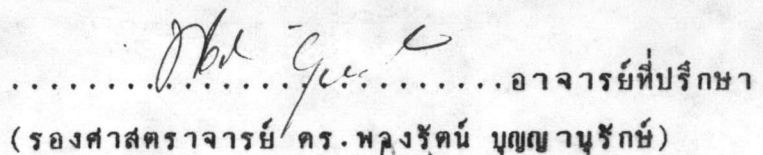 ..............................อาจารย์ที่ปรึกษา
(รองศาสตราจารย์ ดร.พวงรัตน์ บุญญานุรักษ์)